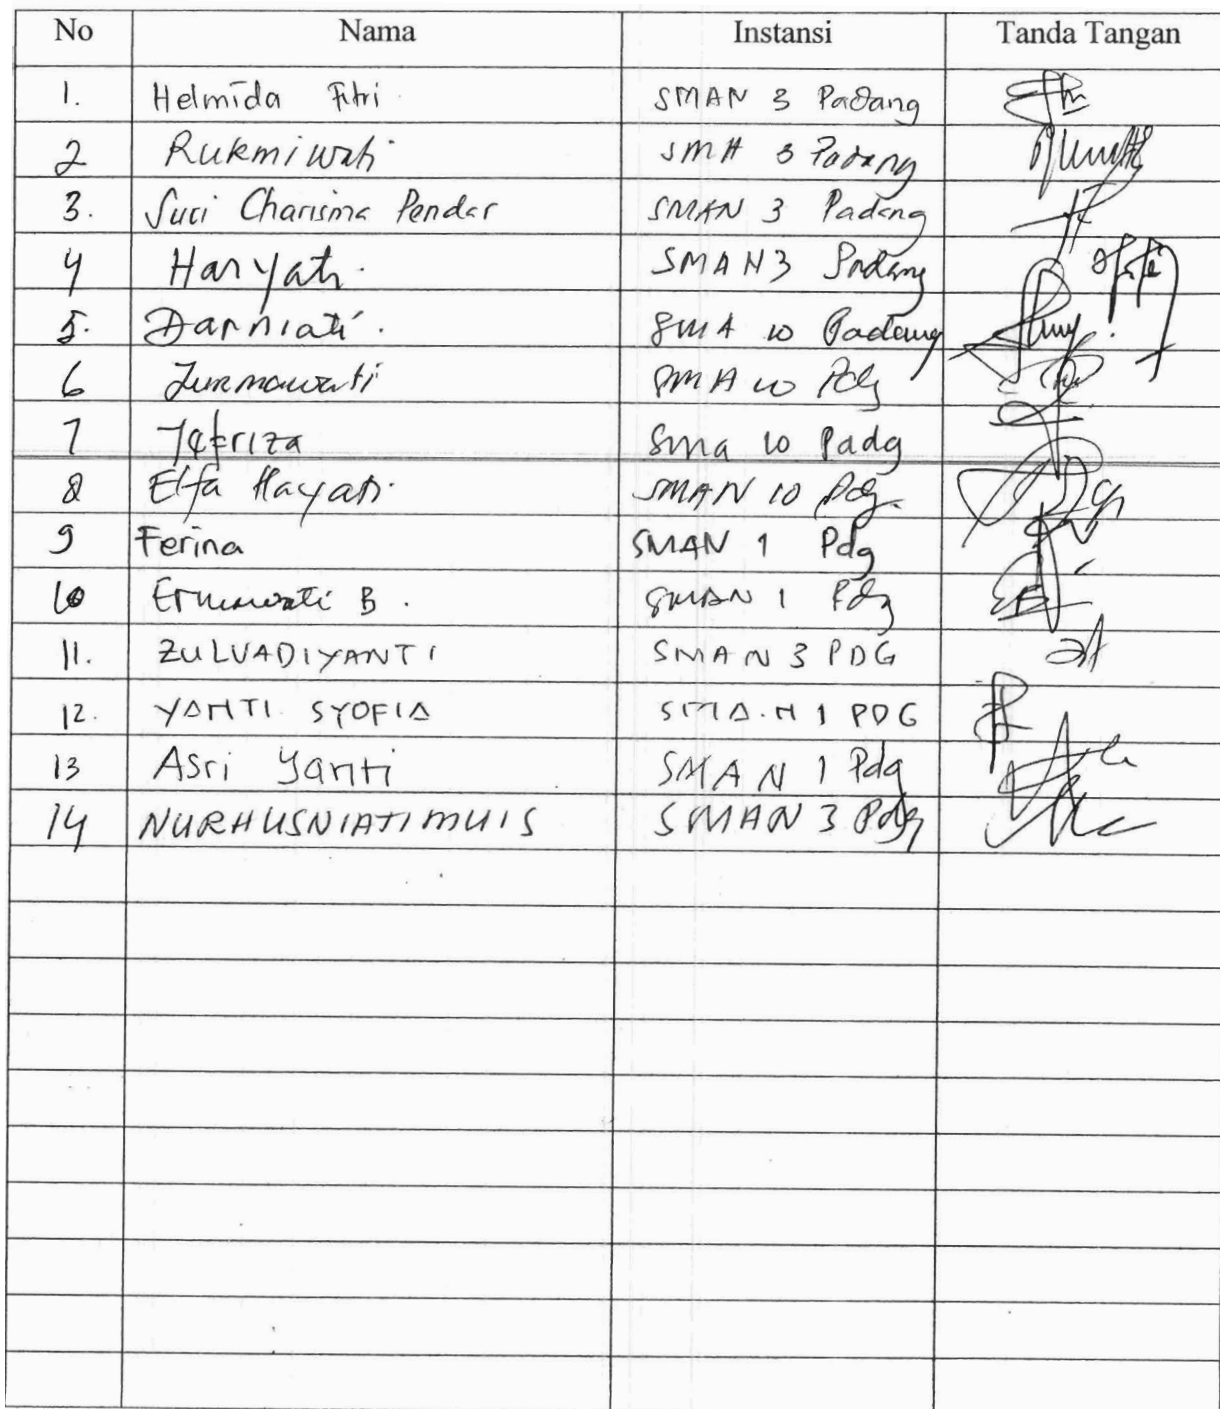 No Nama Instansi Tanda Tangan
1. Helmida Fitri SMAN 3 Padang
2 Rukmiwati SMA 3 Padang
3. Suci Charisma Pendar SMAN 3 Padang
4 Haryati. SMAN 3 Padang
5. Darniati. SMA 10 Padang
6 SMA 10 Pdg
7 Sma 10 Padg
8 Elfa Hayati. SMAN 10 Pdg
9 Ferina SMAN 1 Pdg
10 Ermawati B. SMAN 1 Pdg
11. ZULVADIYANTI SMAN 3 PDG
12. YANTI SYOFIA SMA.N 1 PDG
13 Asri Yanti SMAN 1 Pdg
14 NURHUSNIATI MUIS SMAN 3 Pdg